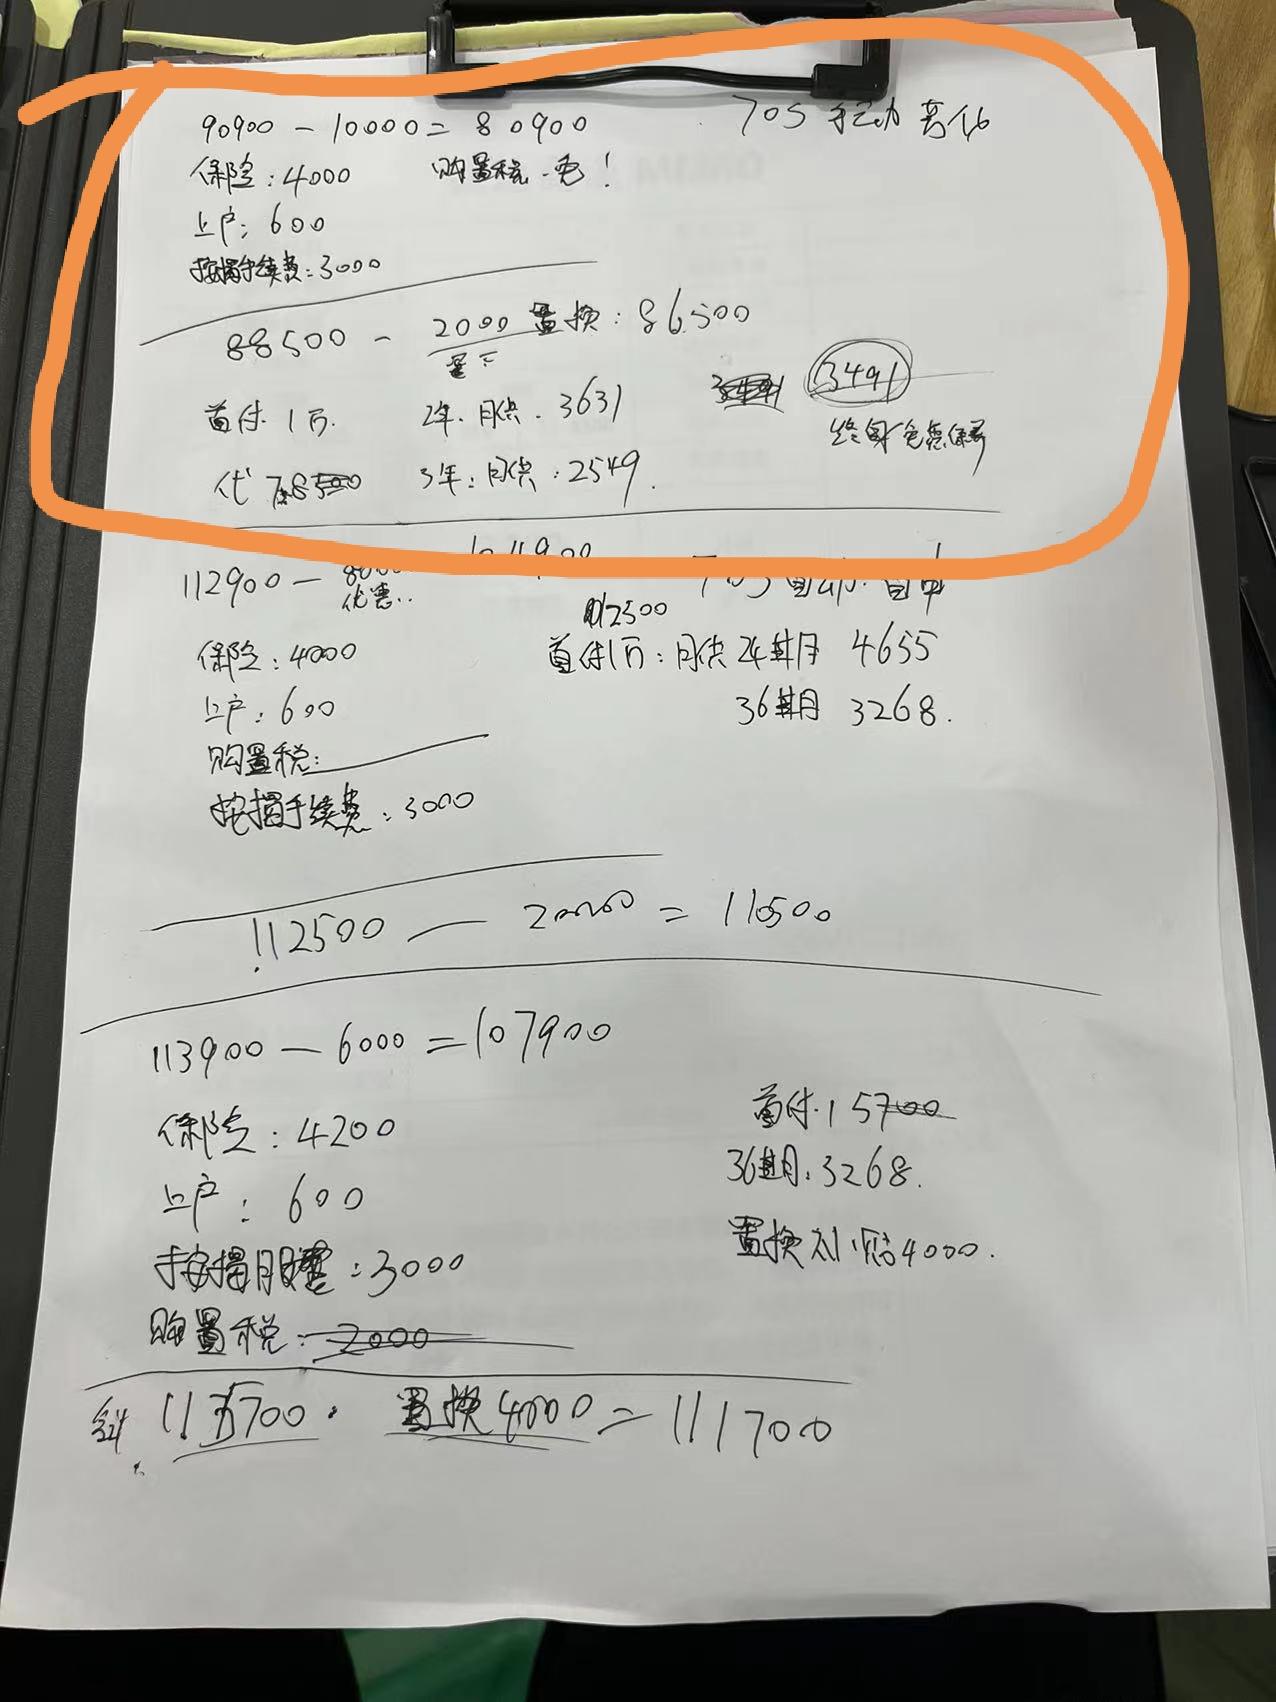 90900 - 10000 = 80900
70S 手动
保险:4000 购置税
上户:600
按揭手续费:3000
88500 - 2000 置换:86500
首付 1万. 2年.月供.3631
3491
终身免费保养
3年:月供:2549.
112900 -
优惠..
112500
保险:4000
首付1万:月供24期月 4655
上户:600
36期月 3268.
购置税:
按揭手续费:3000
112500 — 2000 = 110500
113900 - 6000 = 107900
保险:4200
首付.15700
上户:600
36期月:3268.
按揭:3000
置换补贴4000.
购置税:2000
置换4000 = 111700